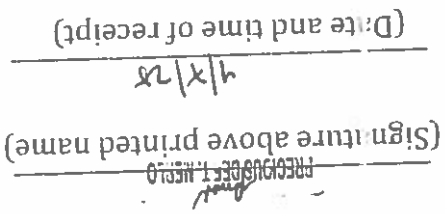 PRECIOUS GEE T.
(Signature above printed name)
(Date and time of receipt)